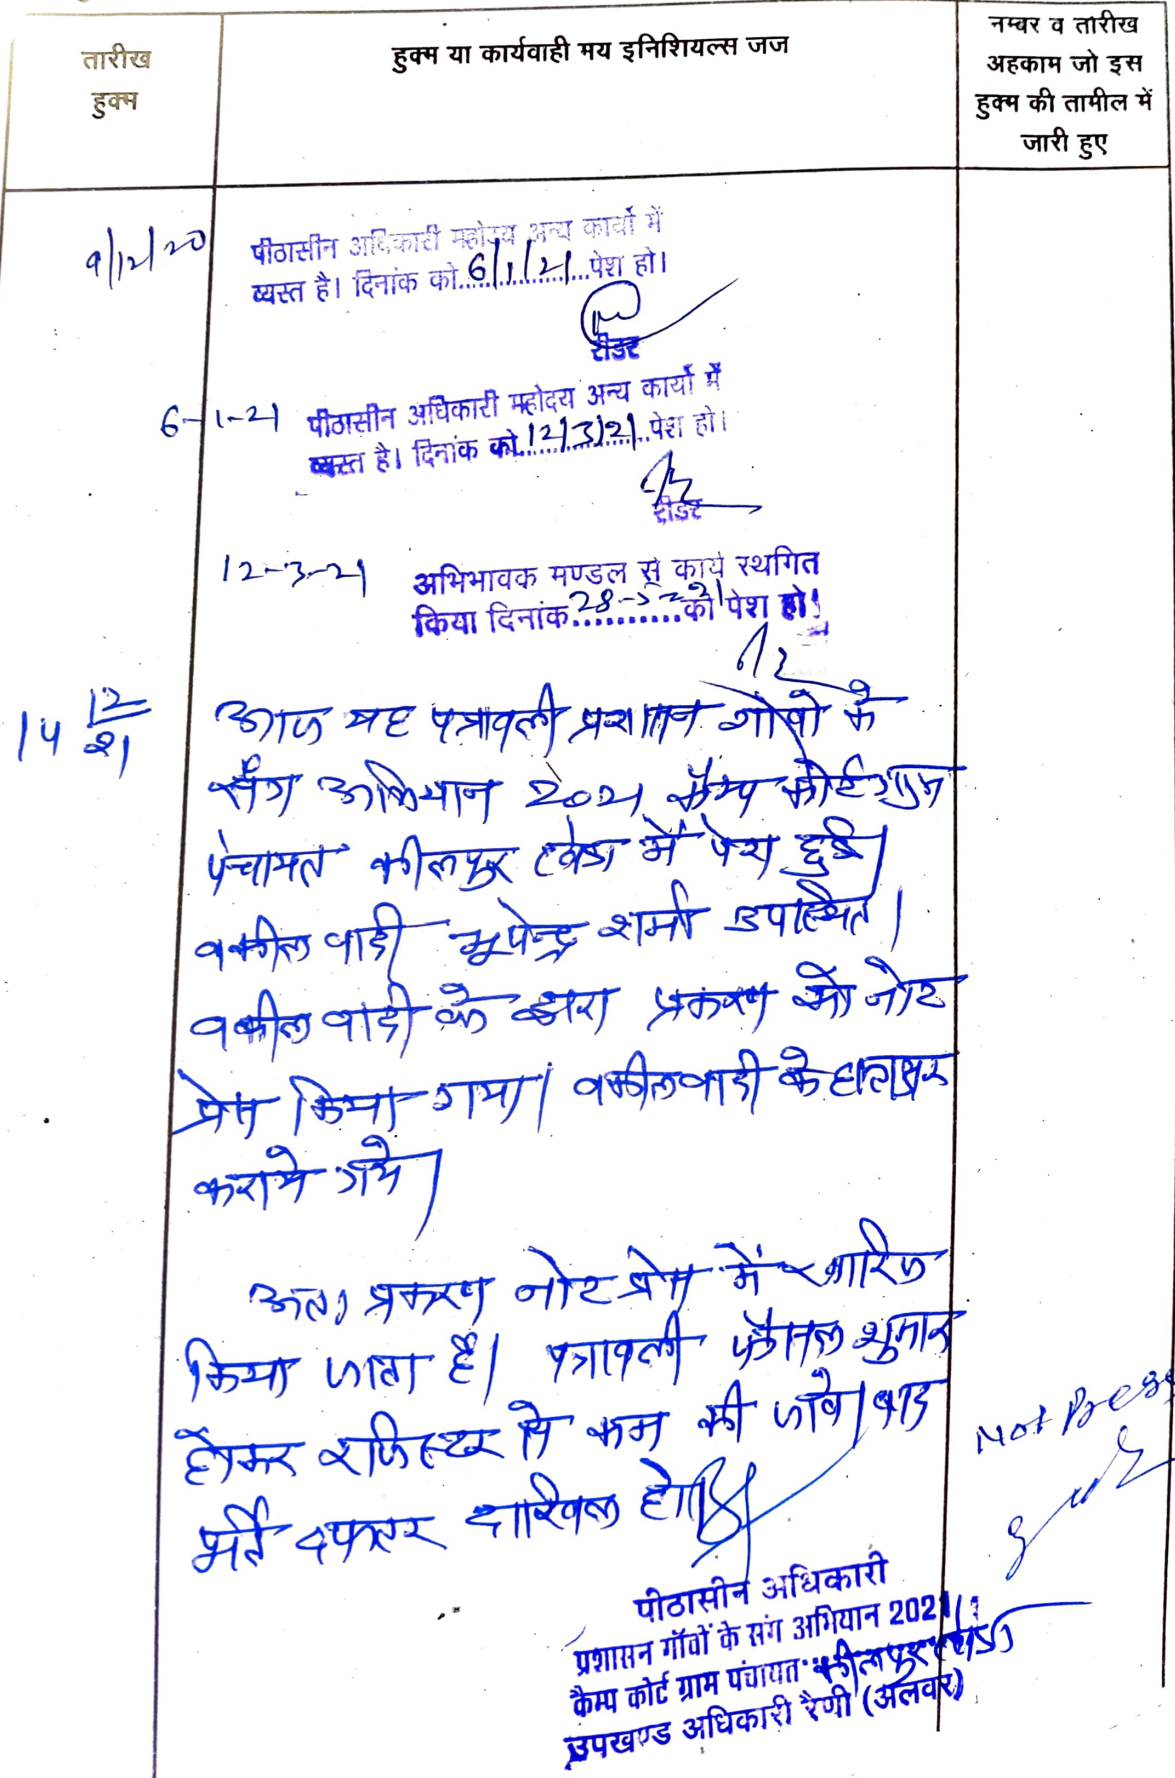 तारीख
हुक्म
हुक्म या कार्यवाही मय इनिशियल्स जज
नम्बर व तारीख
अहकाम जो इस
हुक्म की तामील में
जारी हुए
9/12/20
पीठासीन अधिकारी महोदय अन्य कार्यो में
व्यस्त है। दिनांक को 6/1/21 पेश हो।
रीडर
6-1-21
पीठासीन अधिकारी महोदय अन्य कार्यो में
व्यस्त है। दिनांक को 12/3/21 पेश हो।
रीडर
12-3-21
अभिभावक मण्डल से कार्य स्थगित
किया दिनांक 28-5-21 को पेश हो।
14 12/21
आज यह पत्रावली प्रशासन गांवो के
संग अभियान 2021 कैम्प कोर्ट ग्राम
पंचायत कीलपुर खेडा में पेश हुई।
वकील वादी भूपेन्द्र शर्मा उपस्थित।
वकील वादी के द्वारा प्रकरण को नोट
प्रेस किया गया। वकील वादी के हस्ताक्षर
कराये गये।
अतः प्रकरण नोट प्रेस में खारिज
किया जाता है। पत्रावली फैसल शुमार
होकर रजिस्टर से कम की जावे। बाद
भर्ती दफ्तर दाखिल हो।
Not Press
पीठासीन अधिकारी
प्रशासन गॉवों के संग अभियान 2021
कैम्प कोर्ट ग्राम पंचायत कीलपुर खेडा
उपखण्ड अधिकारी रैणी (अलवर)